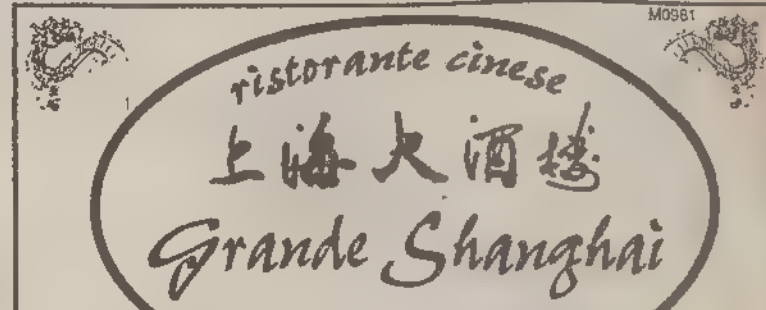 M0981
ristorante cinese
上海大酒楼
Grande Shanghai